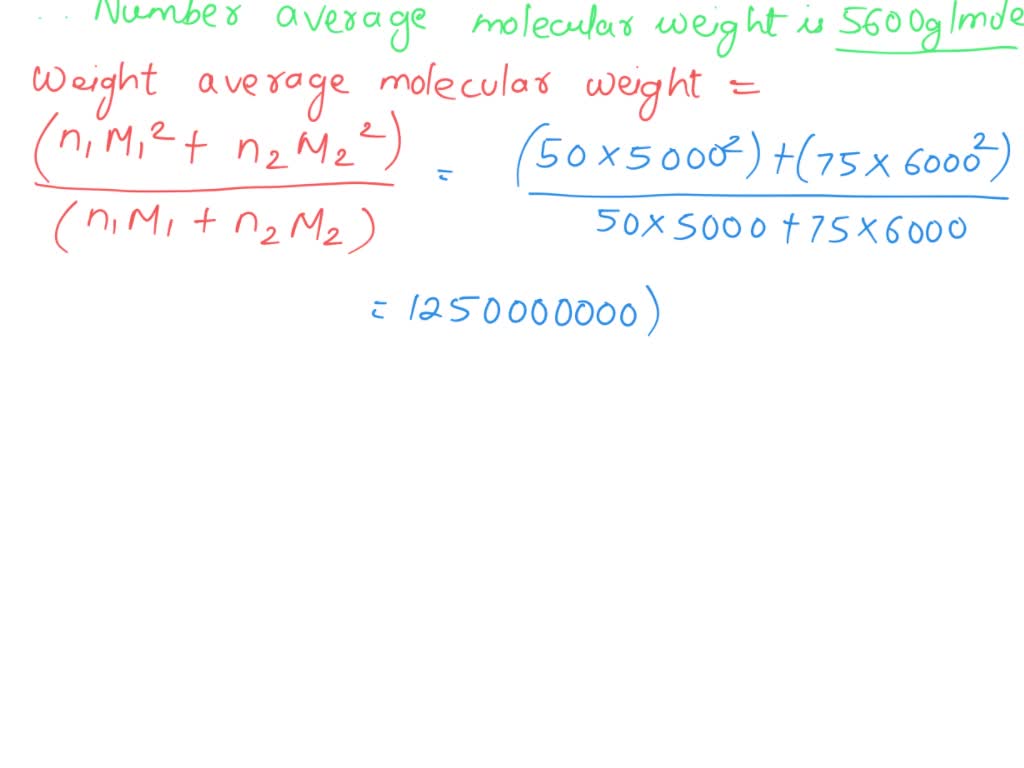 ∴ Number average molecular weight is 5600g/mole
Weight average molecular weight =
(n₁M₁² + n₂M₂²) / (n₁M₁ + n₂M₂) = (50×5000²)+(75×6000²) / 50×5000+75×6000
= 1250000000)